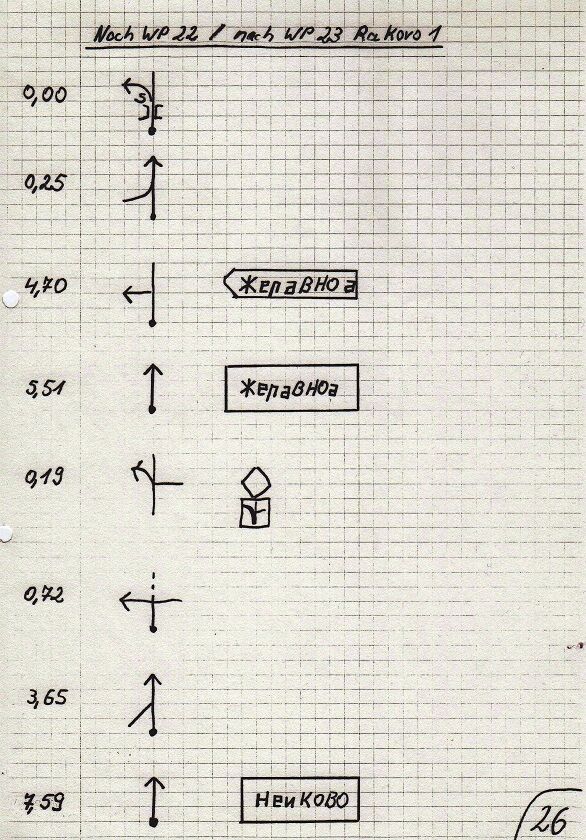 Noch WP 22 / nach WP 23 Rakovo 1
0,00
S
0,25
4,70 Жеравноа
5,51 Жеравноа
0,19
0,72
3,65
7,59 Неиково
26